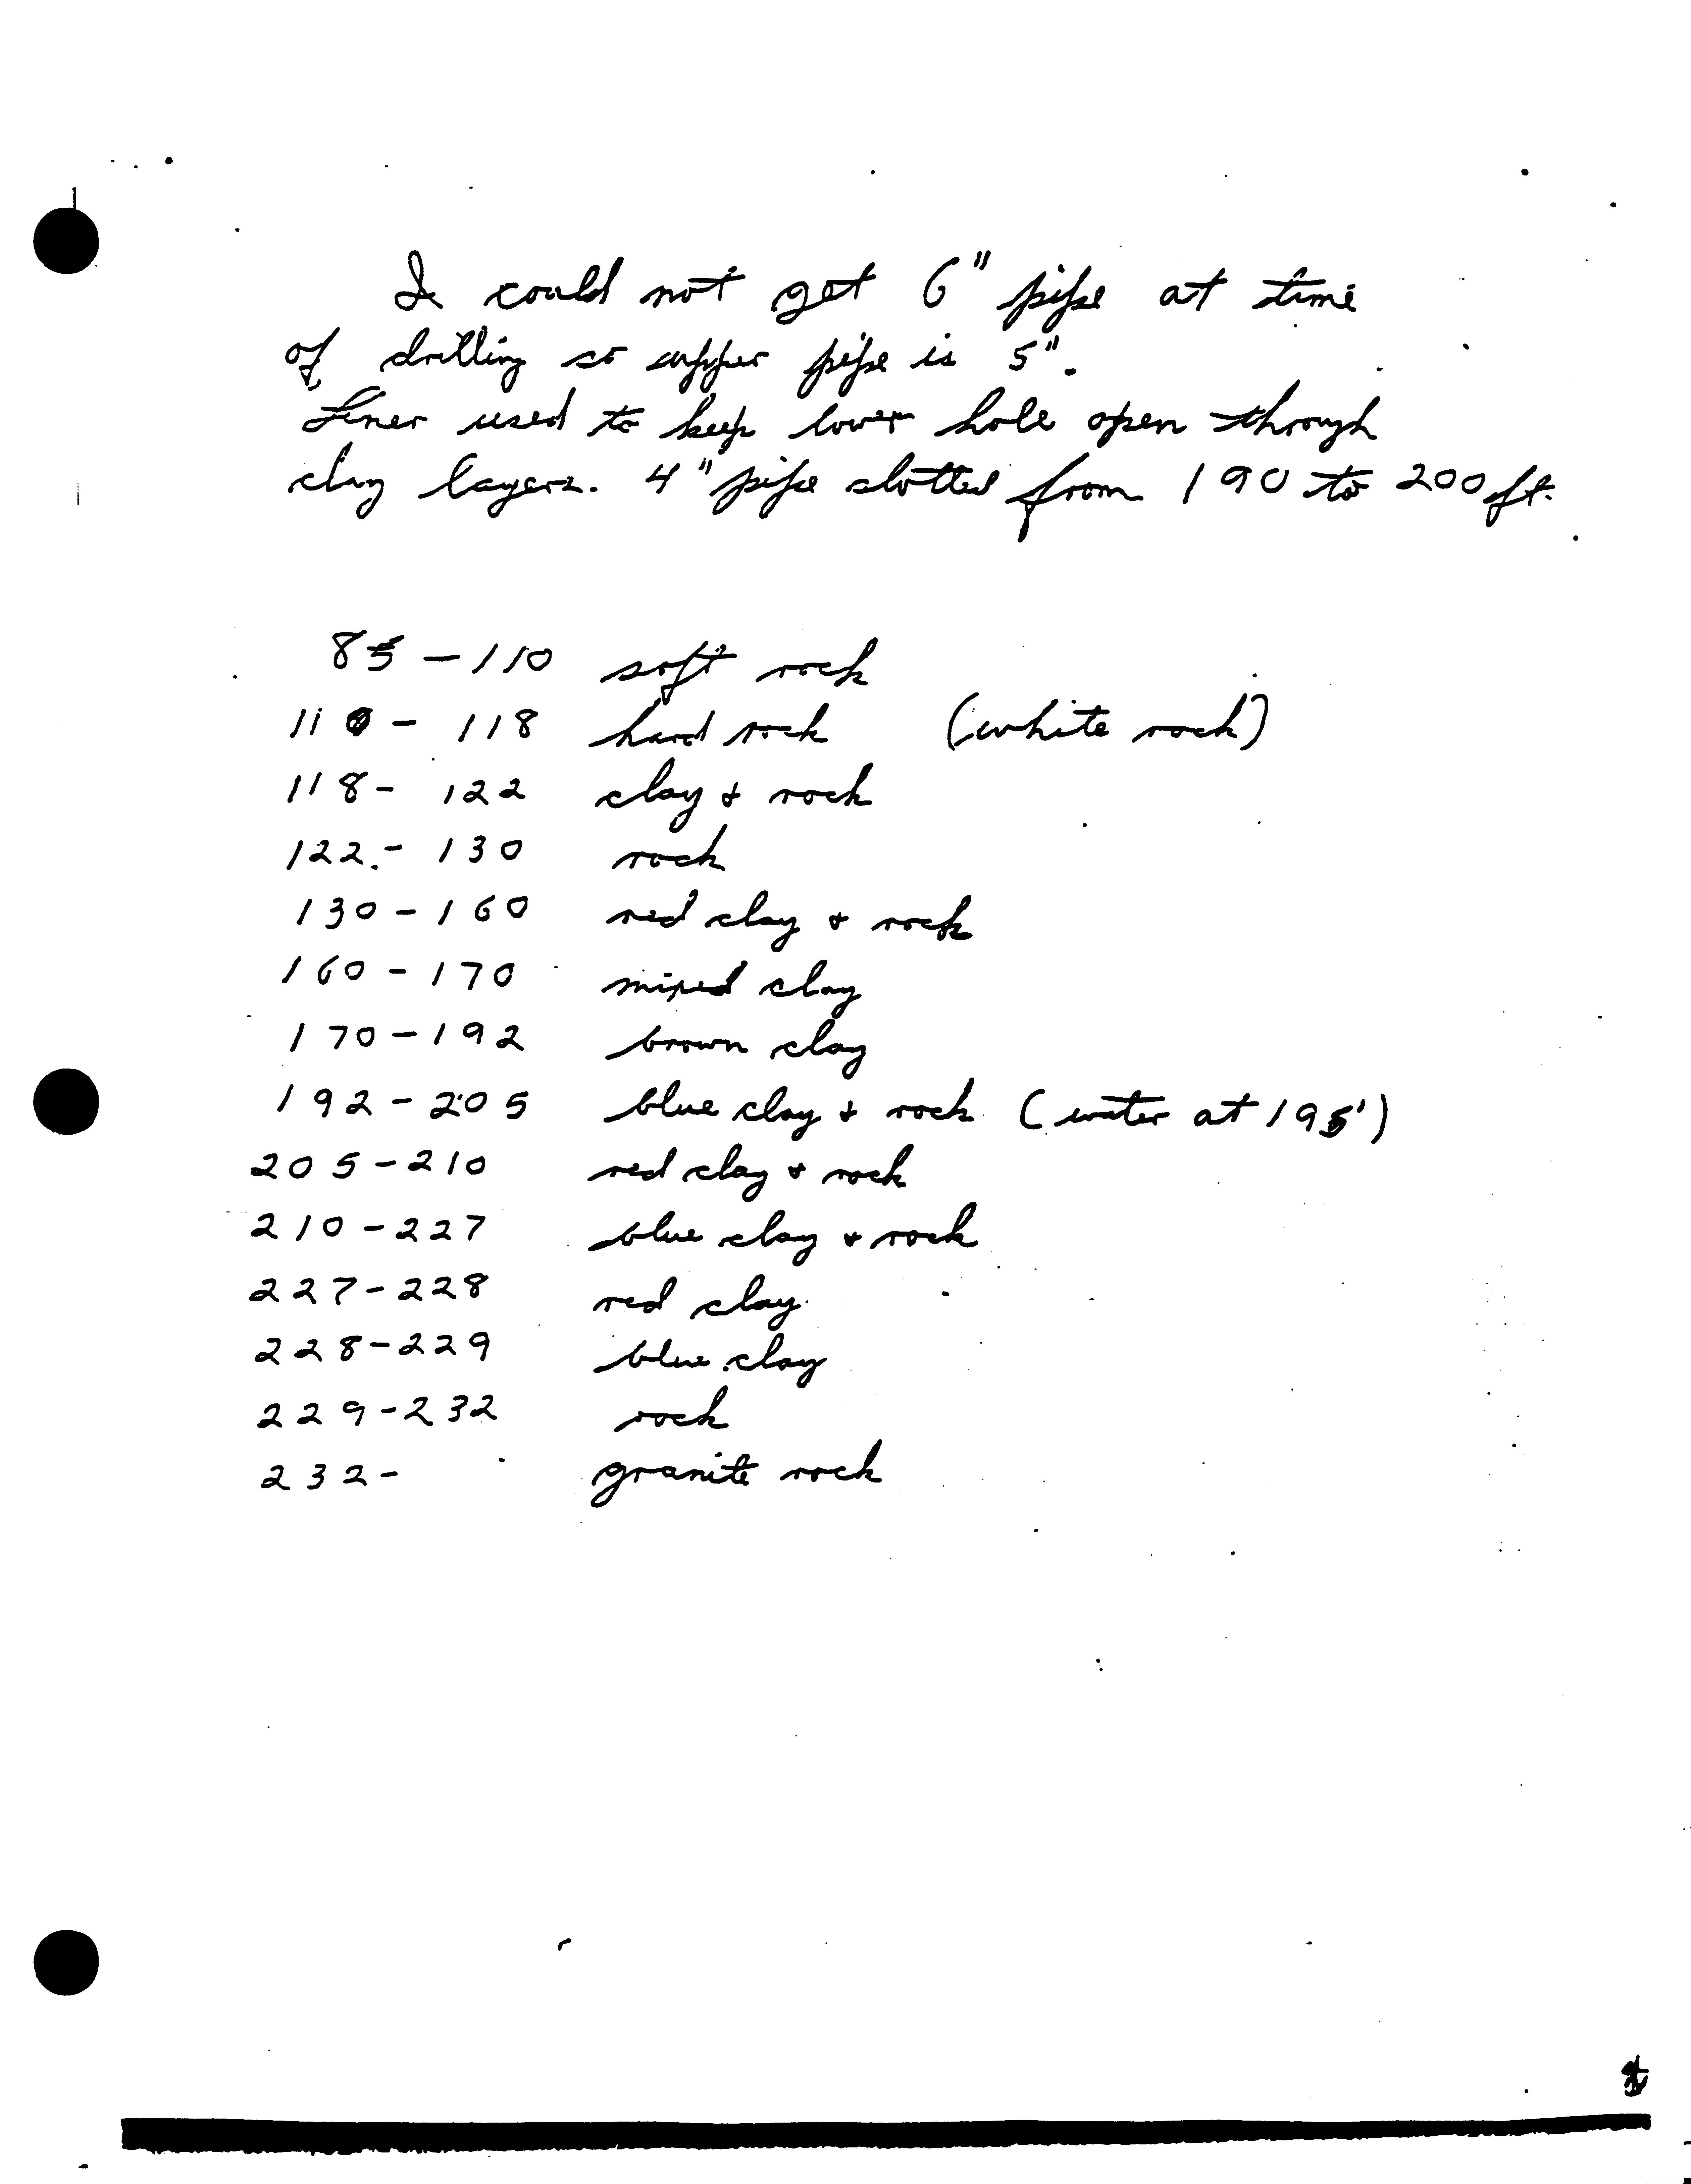 I could not get 6" pipe at time
of drilling so upper pipe is 5".
Liner used to keep lower hole open through
clay layers. 4" pipe slotted from 190 to 200 ft.
85 - 110 soft rock
110 - 118 hard rock (white rock)
118 - 122 clay + rock
122 - 130 rock
130 - 160 red clay + rock
160 - 170 mixed clay
170 - 192 brown clay
192 - 205 blue clay + rock (water at 195')
205 - 210 red clay + rock
210 - 227 blue clay + rock
227 - 228 red clay
228 - 229 blue clay
229 - 232 rock
232 - granite rock